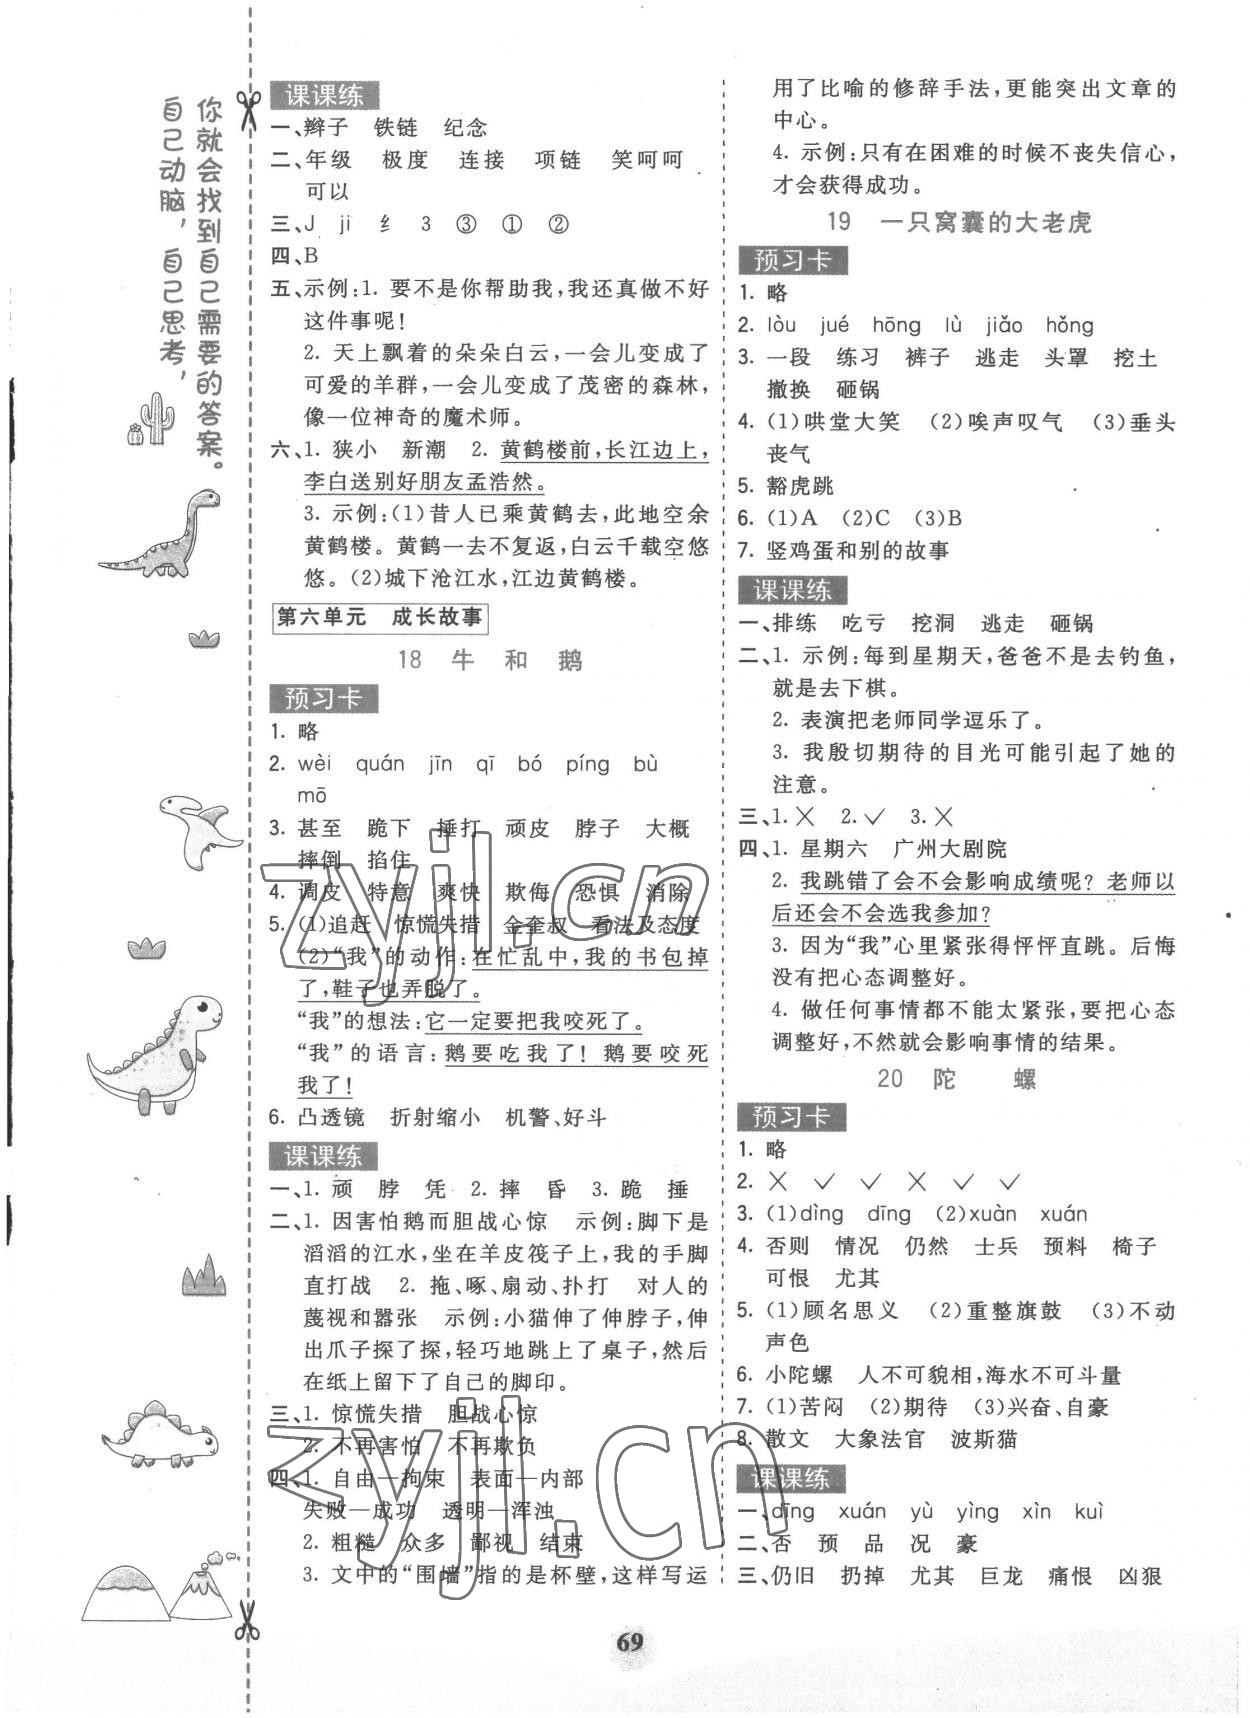 你就会找到自己需要的答案。
自己动脑，自己思考，
课课练
一、辫子 铁链 纪念
二、年级 极度 连接 项链 笑呵呵
可以
三、J ji 纟 3 ③ ① ②
四、B
五、示例:1. 要不是你帮助我,我还真做不好
这件事呢!
2. 天上飘着的朵朵白云,一会儿变成了
可爱的羊群,一会儿变成了茂密的森林,
像一位神奇的魔术师。
六、1. 狭小 新潮 2. 黄鹤楼前,长江边上,
李白送别好朋友孟浩然。
3. 示例:(1)昔人已乘黄鹤去,此地空余
黄鹤楼。黄鹤一去不复返,白云千载空悠
悠。(2)城下沧江水,江边黄鹤楼。
第六单元 成长故事
18 牛 和 鹅
预习卡
1. 略
2. wèi quán jīn qī bó píng bù
mō
3. 甚至 跪下 捶打 顽皮 脖子 大概
摔倒 掐住
4. 调皮 特意 爽快 欺侮 恐惧 消除
5. (1)追赶 惊慌失措 金奎叔 看法及态度
(2)“我”的动作:在忙乱中,我的书包掉
了,鞋子也弄脱了。
“我”的想法:它一定要把我咬死了。
“我”的语言:鹅要吃我了! 鹅要咬死
我了!
6. 凸透镜 折射缩小 机警、好斗
课课练
一、1. 顽 脖 凭 2. 摔 昏 3. 跪 捶
二、1. 因害怕鹅而胆战心惊 示例:脚下是
滔滔的江水,坐在羊皮筏子上,我的手脚
直打战 2. 拖、啄、扇动、扑打 对人的
蔑视和嚣张 示例:小猫伸了伸脖子,伸
出爪子探了探,轻巧地跳上了桌子,然后
在纸上留下了自己的脚印。
三、1. 惊慌失措 胆战心惊
2. 不再害怕 不再欺负
四、1. 自由—拘束 表面—内部
失败—成功 透明—浑浊
2. 粗糙 众多 鄙视 结束
3. 文中的“围墙”指的是杯壁,这样写运
用了比喻的修辞手法,更能突出文章的
中心。
4. 示例:只有在困难的时候不丧失信心,
才会获得成功。
19 一只窝囊的大老虎
预习卡
1. 略
2. lòu jué hōng lù jiǎo hǒng
3. 一段 练习 裤子 逃走 头罩 挖土
撤换 砸锅
4. (1)哄堂大笑 (2)唉声叹气 (3)垂头
丧气
5. 豁虎跳
6. (1)A (2)C (3)B
7. 竖鸡蛋和别的故事
课课练
一、排练 吃亏 挖洞 逃走 砸锅
二、1. 示例:每到星期天,爸爸不是去钓鱼,
就是去下棋。
2. 表演把老师同学逗乐了。
3. 我殷切期待的目光可能引起了她的
注意。
三、1.╳ 2.✓ 3.╳
四、1. 星期六 广州大剧院
2. 我跳错了会不会影响成绩呢? 老师以
后还会不会选我参加?
3. 因为“我”心里紧张得怦怦直跳。后悔
没有把心态调整好。
4. 做任何事情都不能太紧张,要把心态
调整好,不然就会影响事情的结果。
20 陀 螺
预习卡
1. 略
2. ╳ ✓ ✓ ╳ ✓ ✓
3. (1)dìng dīng (2)xuàn xuán
4. 否则 情况 仍然 士兵 预料 椅子
可恨 尤其
5. (1)顾名思义 (2)重整旗鼓 (3)不动
声色
6. 小陀螺 人不可貌相,海水不可斗量
7. (1)苦闷 (2)期待 (3)兴奋、自豪
8. 散文 大象法官 波斯猫
课课练
一、dīng xuán yù yìng xìn kuì
二、否 预 品 况 豪
三、仍旧 扔掉 尤其 巨龙 痛恨 凶狠
69
zyjl.cn
zyjl.cn